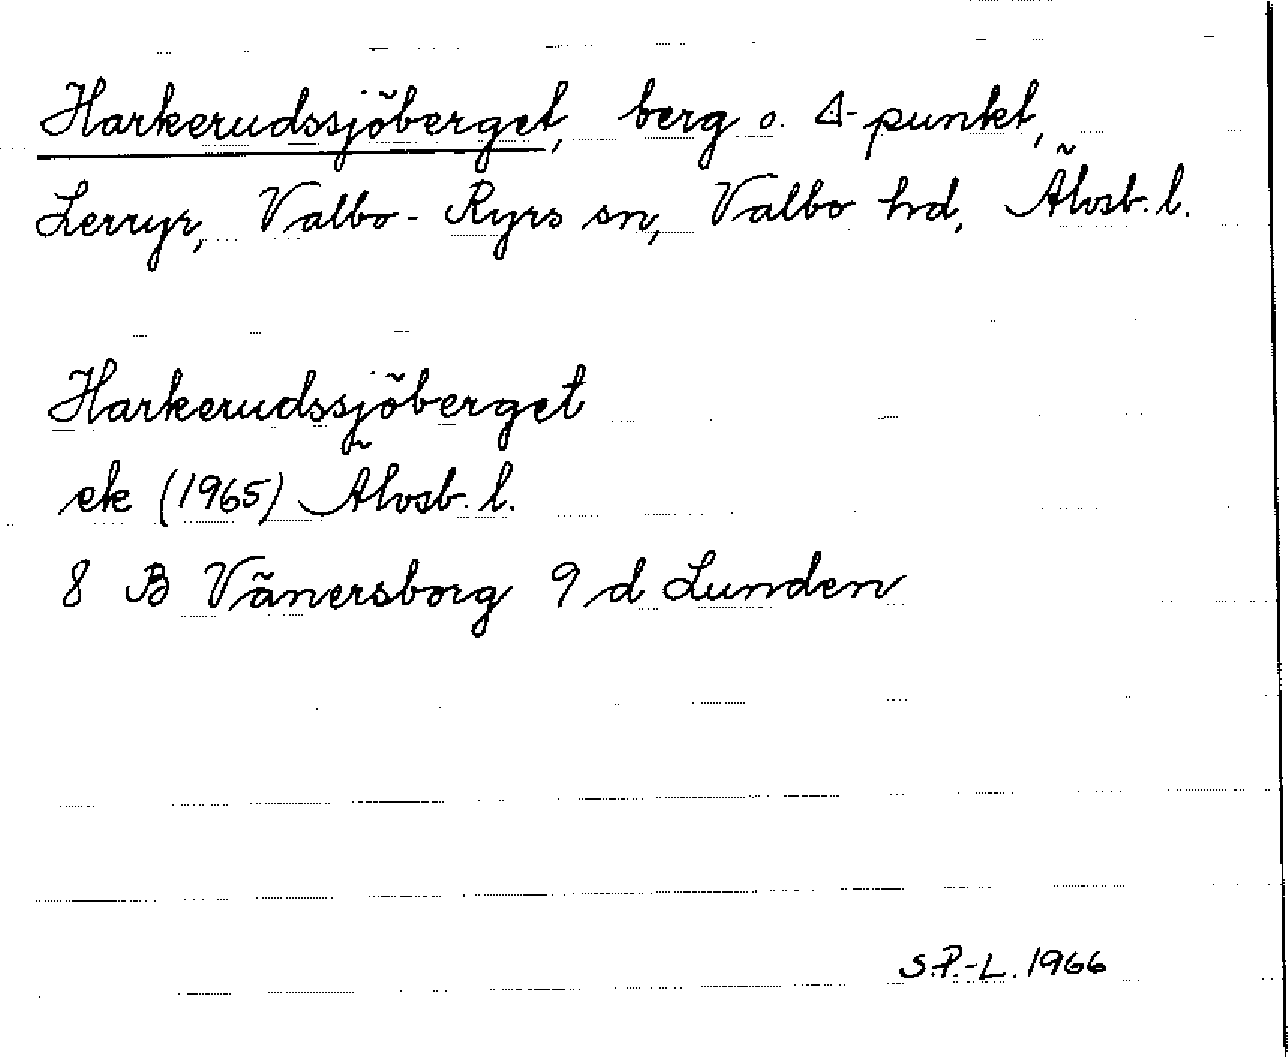 Harkerudssjöberget, berg o. Δ-punkt,
Lerryr, Valbo-Ryrs sn, Valbo hd, Älvsb. l.
Harkerudssjöberget
ek (1965) Älvsb. l.
8 B Vänersborg 9 d Lunden
S.P.-L. 1966